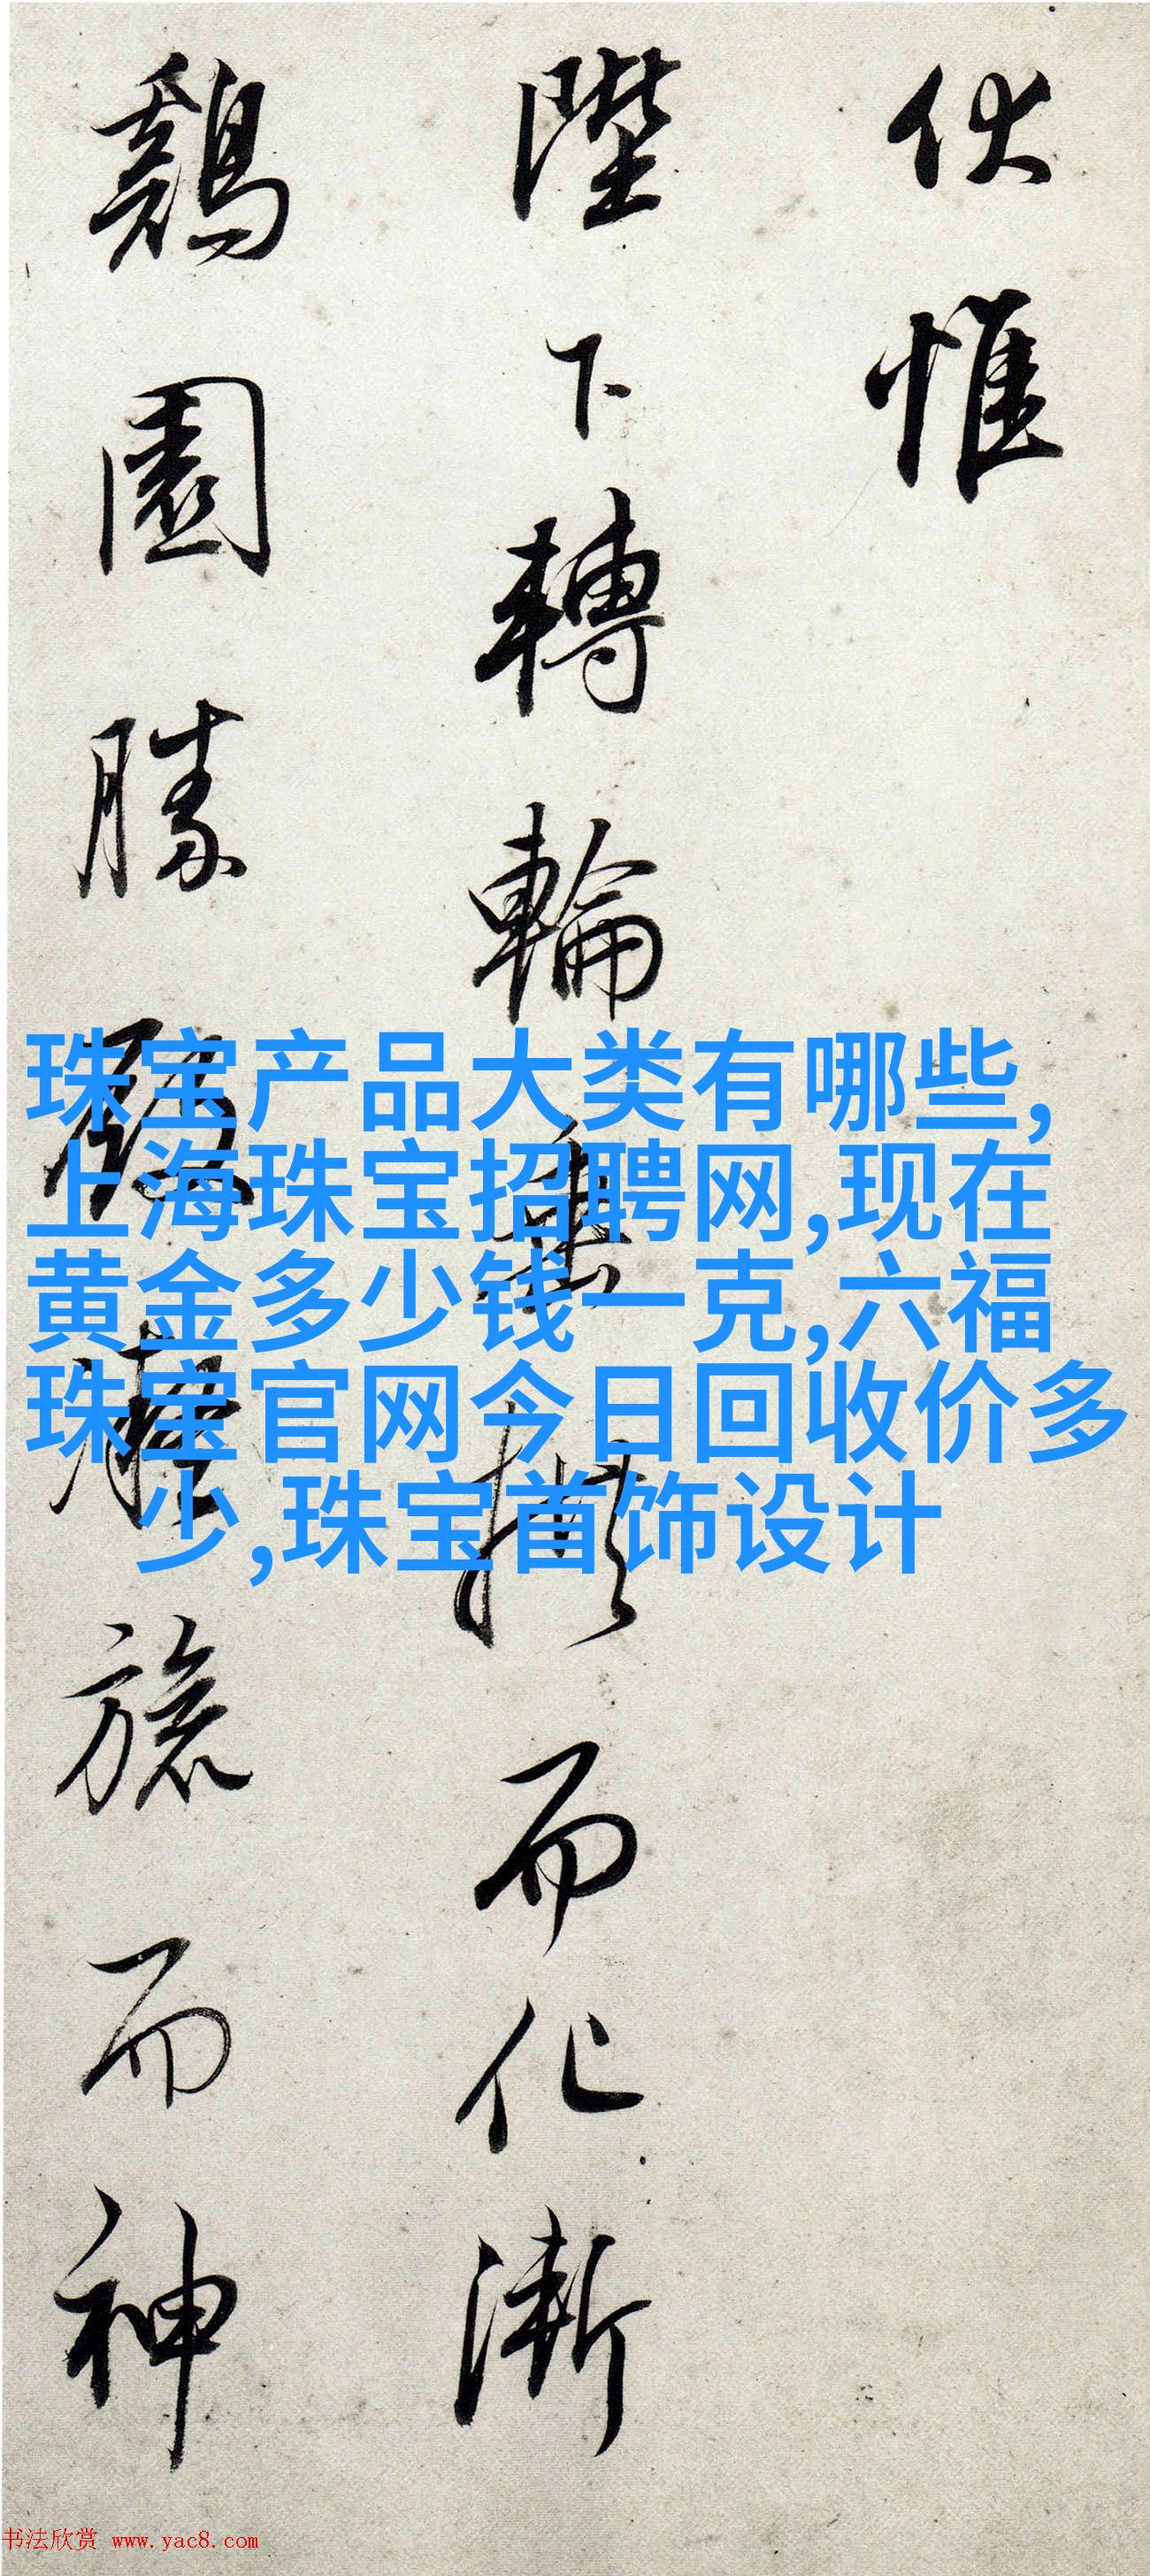 伏惟
陛下轉輪垂拱而化漸
鷄園勝殿雜旅而神
珠宝产品大类有哪些,
上海珠宝招聘网,现在
黄金多少钱一克,六福
珠宝官网今日回收价多
少,珠宝首饰设计
书法欣赏 www.yac8.com